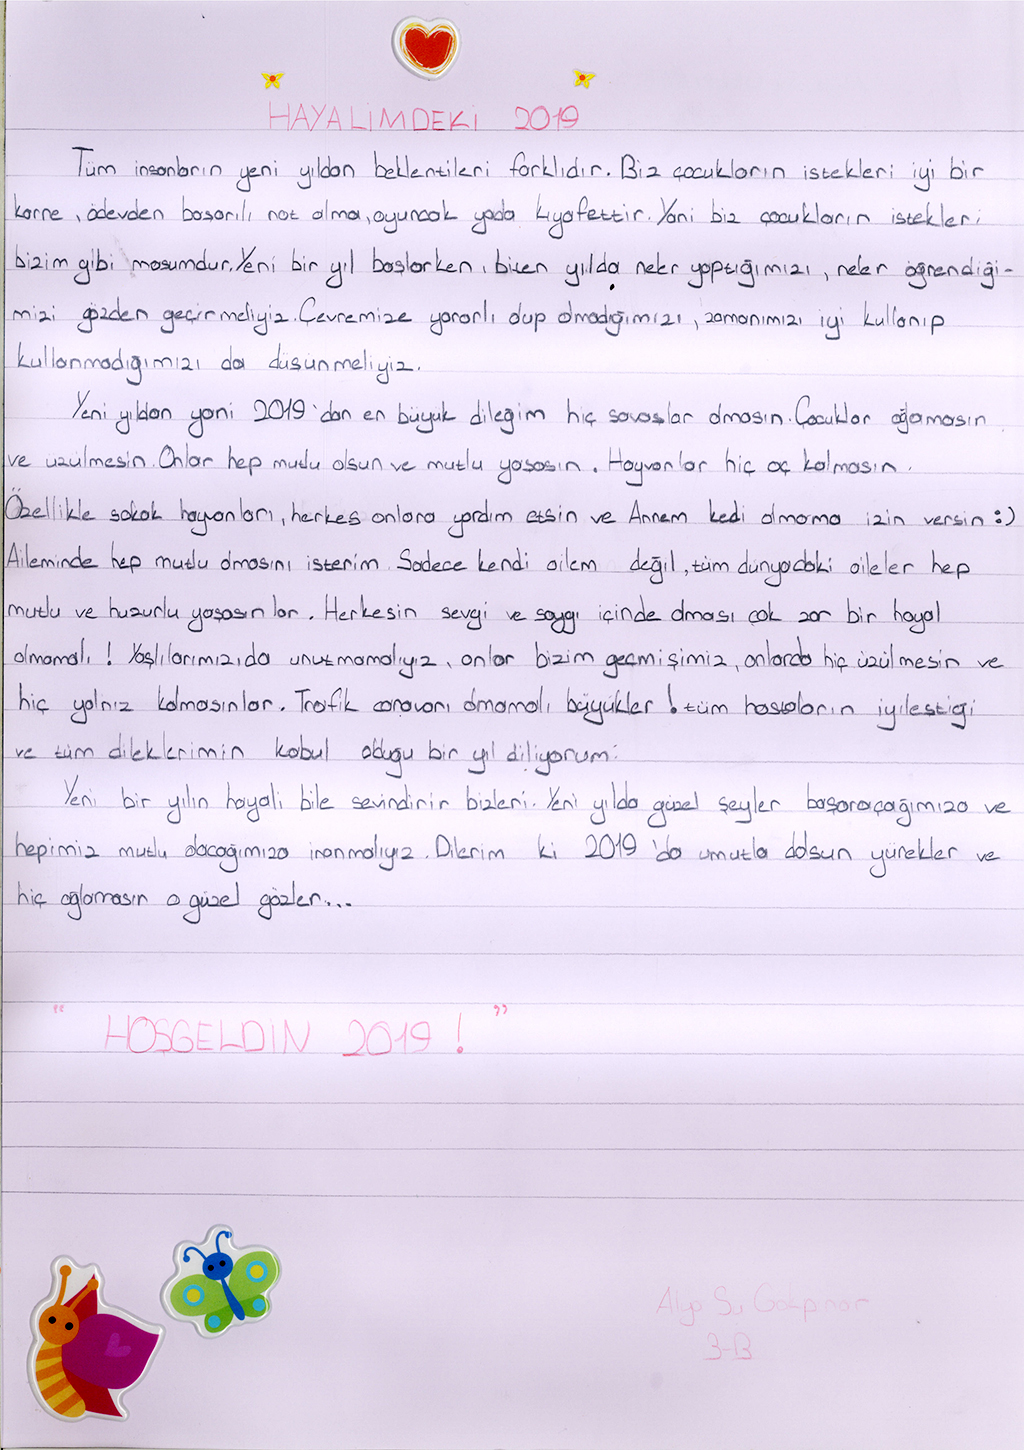 HAYALİMDEKİ 2019
Tüm insanların yeni yıldan beklentileri farklıdır. Biz çocukların istekleri iyi bir
karne, ödevden başarılı not alma, oyuncak yada kıyafettir. Yani biz çocukların istekleri
bizim gibi masumdur. Yeni bir yıl başlarken, biten yılda neler yaptığımızı, neler öğrendiği-
mizi gözden geçirmeliyiz. Çevremize yararlı olup olmadığımızı, zamanımızı iyi kullanıp
kullanmadığımızı da düşünmeliyiz.
Yeni yıldan yani 2019'dan en büyük dileğim hiç savaşlar olmasın. Çocuklar ağlamasın
ve üzülmesin. Onlar hep mutlu olsun ve mutlu yaşasın. Hayvanlar hiç aç kalmasın.
Özellikle sokak hayvanları, herkes onlara yardım etsin ve Annem kedi almama izin versin :)
Aileminde hep mutlu olmasını isterim. Sadece kendi ailem değil, tüm dünyadaki aileler hep
mutlu ve huzurlu yaşasınlar. Herkesin sevgi ve saygı içinde olması çok zor bir hayal
olmamalı! Yaşlılarımızıda unutmamalıyız, onlar bizim geçmişimiz, onlarda hiç üzülmesin ve
hiç yalnız kalmasınlar. Trafik canavarı olmamalı büyükler! tüm hastaların iyileştiği
ve tüm dileklerimin kabul olduğu bir yıl diliyorum.
Yeni bir yılın hayali bile sevindirir bizleri. Yeni yılda güzel şeyler başaracağımıza ve
hepimiz mutlu olacağımıza inanmalıyız. Dilerim ki 2019'da umutla dolsun yürekler ve
hiç ağlamasın o güzel gözler...
"HOŞGELDİN 2019!"
Alya S. Gökpınar
3-B